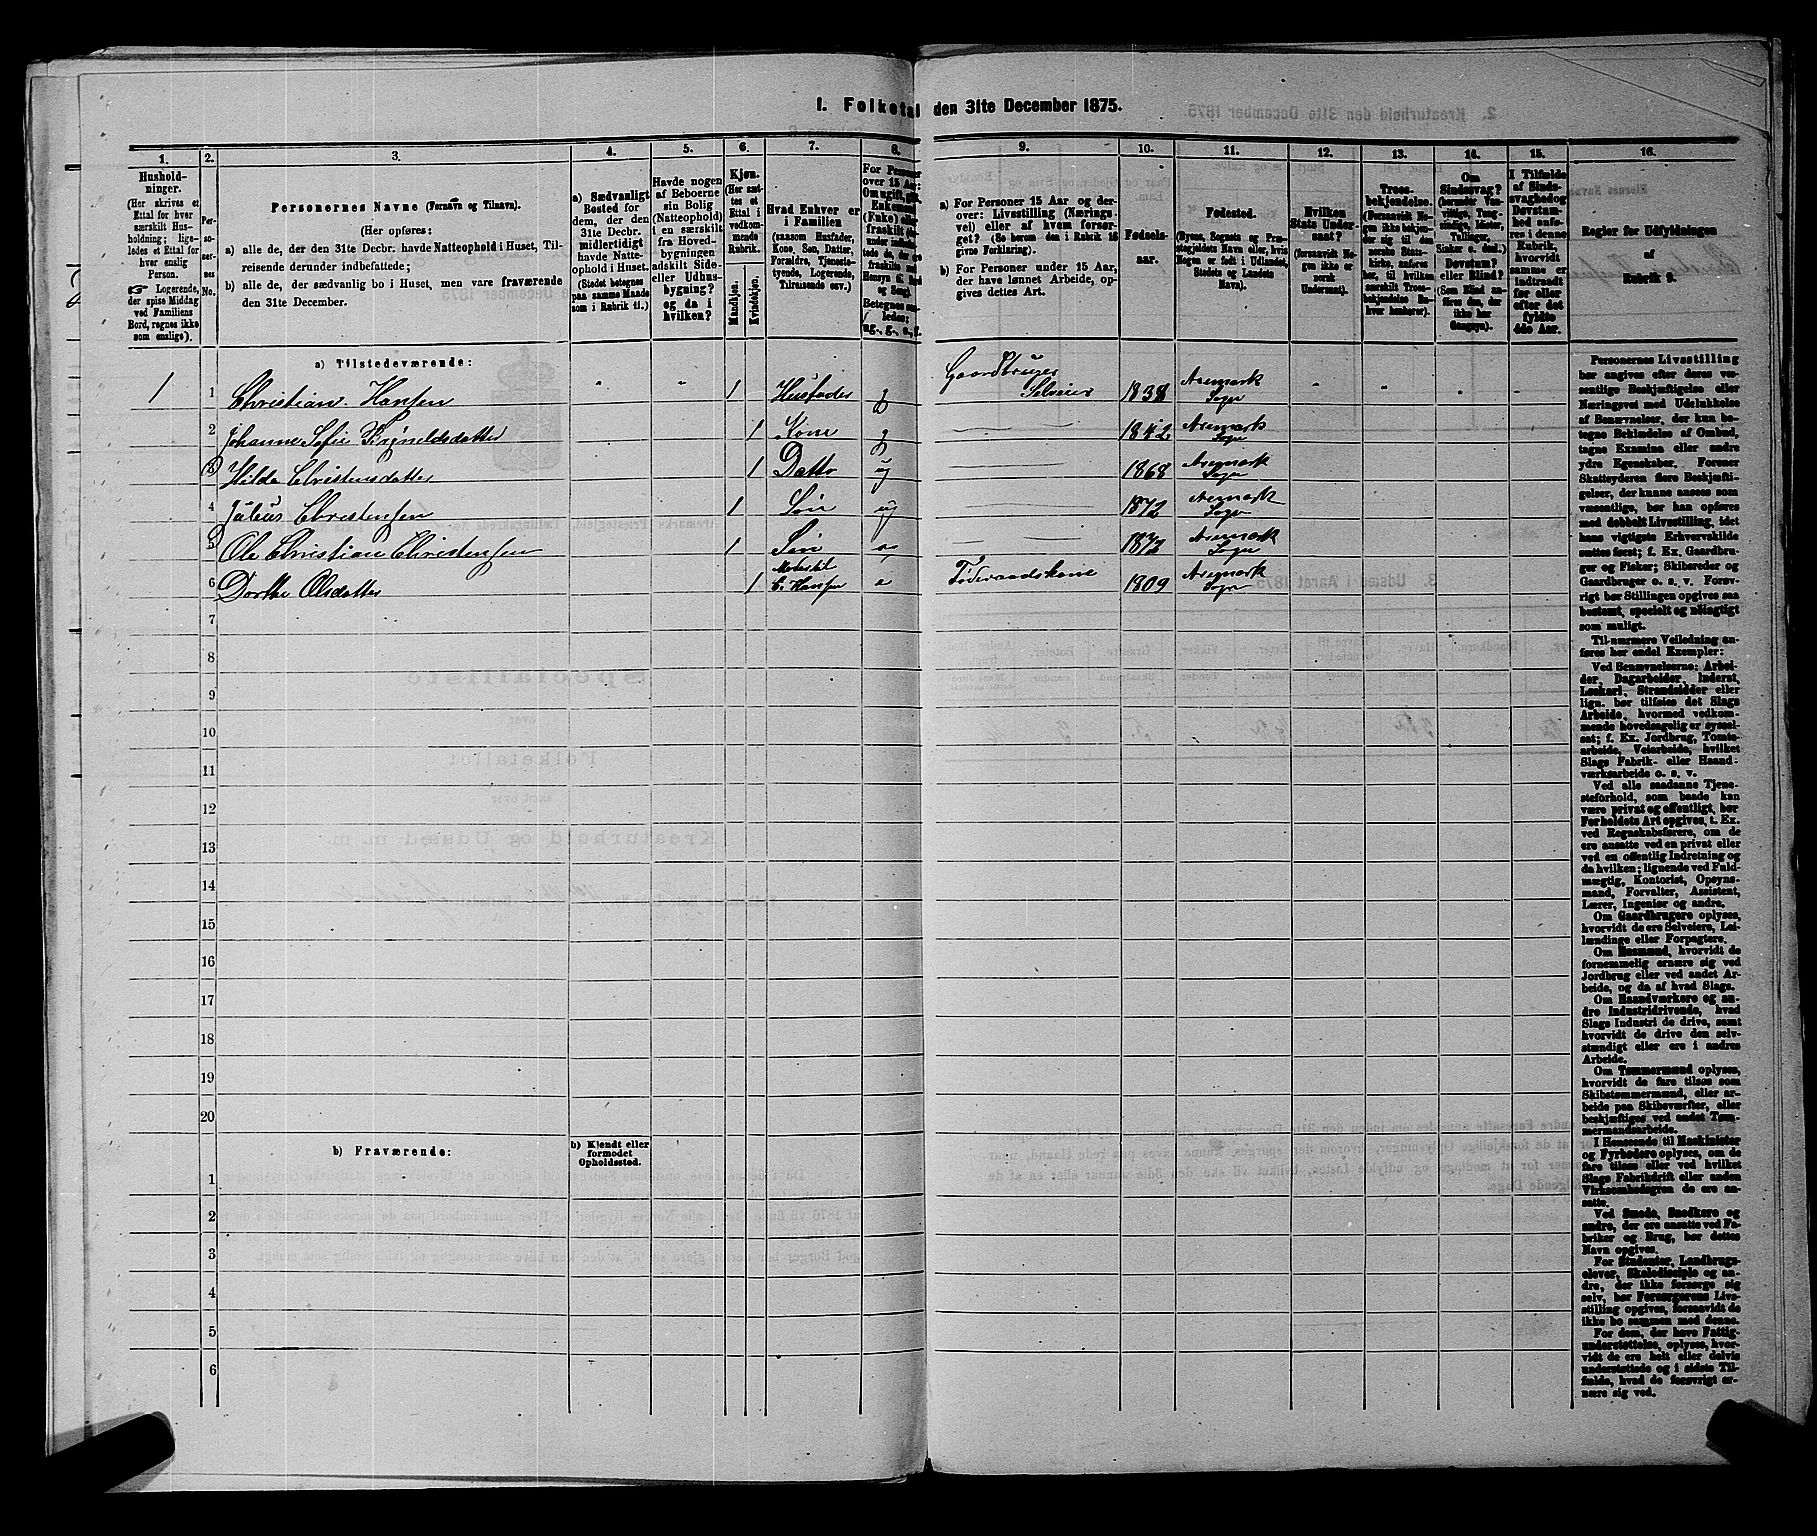 1. Folketal den 31te December 1875.
1. 2. 3. 4. 5. 6. 7. 8. 9. 10. 11. 12. 13. 14. 15. 16.
Husholdninger.
(Her skrives et Ettal for hver særskilt Husholdning; ligeledes et Ettal for hver enslig Person.
☞ Logerende, der spise Middag ved Familiens Bord, regnes ikke som enslige).
Personernes No.
Personernes Navne (Fornavn og Tilnavn).
(Her opføres:
a) alle de, der den 31te Decbr. havde Natteophold i Huset, Tilreisende derunder indbefattede;
b) alle de, der sædvanlig bo i Huset, men vare fraværende den 31te December.
a) Sædvanligt Bosted for dem, der den 31te Decbr. midlertidigt havde Natteophold i Huset.
(Stedet betegnes paa samme Maade som i Rubrik 11.)
Havde nogen af Beboerne sin Bolig (Natteophold) i en særskilt fra Hovedbygningen adskilt Side- eller Udhusbygning? og da i hvilken?
Kjøn.
(Her sættes et Ettal i vedkommende Rubrik.
Mandkjøn.
Kvindekjøn.
Hvad Enhver er i Familien
(saasom Husfader, Kone, Søn, Datter, Forældre, Tjenestetyende, Logerende, Tilreisende osv.)
For Personer over 15 Aar:
a) For Personer 15 Aar og derover: Livsstilling (Næringsvei) eller af hvem forsørget? (Se herom den i Rubrik 16 givne Forklaring).
b) For Personer under 15 Aar, der have lønnet Arbeide, opgives dettes Art.
Fødselsaar.
Fødested.
(Byens, Sognets og Præstegjeldets Navn eller, hvis Nogen er født i Udlandet, Stedets og Landets Navn).
Hvilken Stats Undersaat?
(forsaavidt Nogen ikke er norsk Undersaat).
Troesbekjendelse.
Om Sindssvag?
Døvstum? eller Blind?
I Tilfælde af Sindssvaghed og Døvstumhed anføres i denne Rubrik, hvorvidt samme er indtraadt før eller efter det fyldte 4de Aar.
Regler for Udfyldningen af Rubrik 9.
a) Tilstedeværende:
1 1 Christian Hansen " " 1 Husfader g Gaardbruger Selveier 1838 Aremark Sogn " " "
2 Johanne Sofie 1 Kone g 1842 Aremark Sogn
3 Hilda Christensdatter 1 Datter ug 1868 Aremark Sogn
4 Julius Christensen 1 Søn ug 1872 Aremark Sogn
5 Ole Christian Christensen 1 Søn Aremark Sogn
6 Dorthe Olsdatter 1 Moder til C. Hansen e Føderaadskone 1809 Aremark Sogn
7
8
9
10
11
12
13
14
15
16
17
18
19
20
b) Fraværende:
b) Kjendt eller formodet Opholdssted.
1
2
3
4
5
6
Personernes Livsstilling bør angives efter deres væsentlige Beskjæftigelse eller Næringsvei med Udelukkelse af Benævnelser, der kun betegne Beklædelse af Ombud, tagne Examina eller andre ydre Egenskaber. Forener Skatteyderen flere Beskjæftigelser, der kunne ansees som væsentlige, bør han opføres med dobbelt Livsstilling, idet hans vigtigste Erhvervskilde sættes først; f. Ex. Gaardbruger og Fisker; Skibsreder og Gaardbruger o. s. v. Forøvrigt bør Stillingen opgives saa bestemt, specielt og nøiagtigt som muligt.
Til nærmere Veiledning anføres her endel Exempler:
Ved Benævnelserne: Arbeider, Dagarbeider, Inderst, Løskarl, Strandsidder eller lign. bør tilføies det Slags Arbeide, hvormed vedkommende hovedsagelig er sysselsat; f. Ex. Jordbrug, Tomtearbeide, Veiarbeide, hvilket Slags Fabrik- eller Haandværksarbeide o. s. v.
Ved alle saadanne Tjenesteforhold, som baade kan være privat og offentligt, bør Forholdets Art opgives, t. Ex. ved Regnskabsførere, om de ere ansatte ved en privat eller ved en offentlig Indretning og da hvilken; lignende ved Fuldmægtig, Kontorist, Opsynsmand, Forvalter, Assistent, Lærer, Ingeniør og andre.
Om Gaardbrugere oplyses, hvorvidt de ere Selveiere, Leilændinge eller Forpagtere.
Om Husmænd, hvorvidt de fornemmelig ernære sig ved Jordbrug eller ved andet Arbeide, og da af hvad Slags.
Om Haandværkere og andre Industridrivende, hvad Slags Industri de drive, samt hvorvidt de drive den selvstændigt eller ere i andres Arbeide.
Om Tømmermænd oplyses, hvorvidt de fare tilsøs som Skibstømmermænd, eller arbeide paa Skibsværfter, eller beskjæftiges ved andet Tømmermandsarbeide.
I Henseende til Maskinister og Fyrbødere oplyses, om de fare tilsøs eller ved hvilket Slags Fabrikdrift eller anden Virksomhedsgren de ere ansatte.
Ved Smede, Snedkere og andre, der ere ansatte ved Fabriker og Brug, bør dettes Navn opgives.
For Studenter, Landbrugselever, Skoledisciple og andre, der ikke forsørge sig selv, bør Forsørgerens Livsstilling opgives, forsaavidt de ikke bo sammen med denne.
For dem, der have Fattigunderstøttelse, oplyses, hvorvidt de ere helt eller delvis understøttede og i sidste Tilfælde, hvad de forøvrigt ernære sig ved.